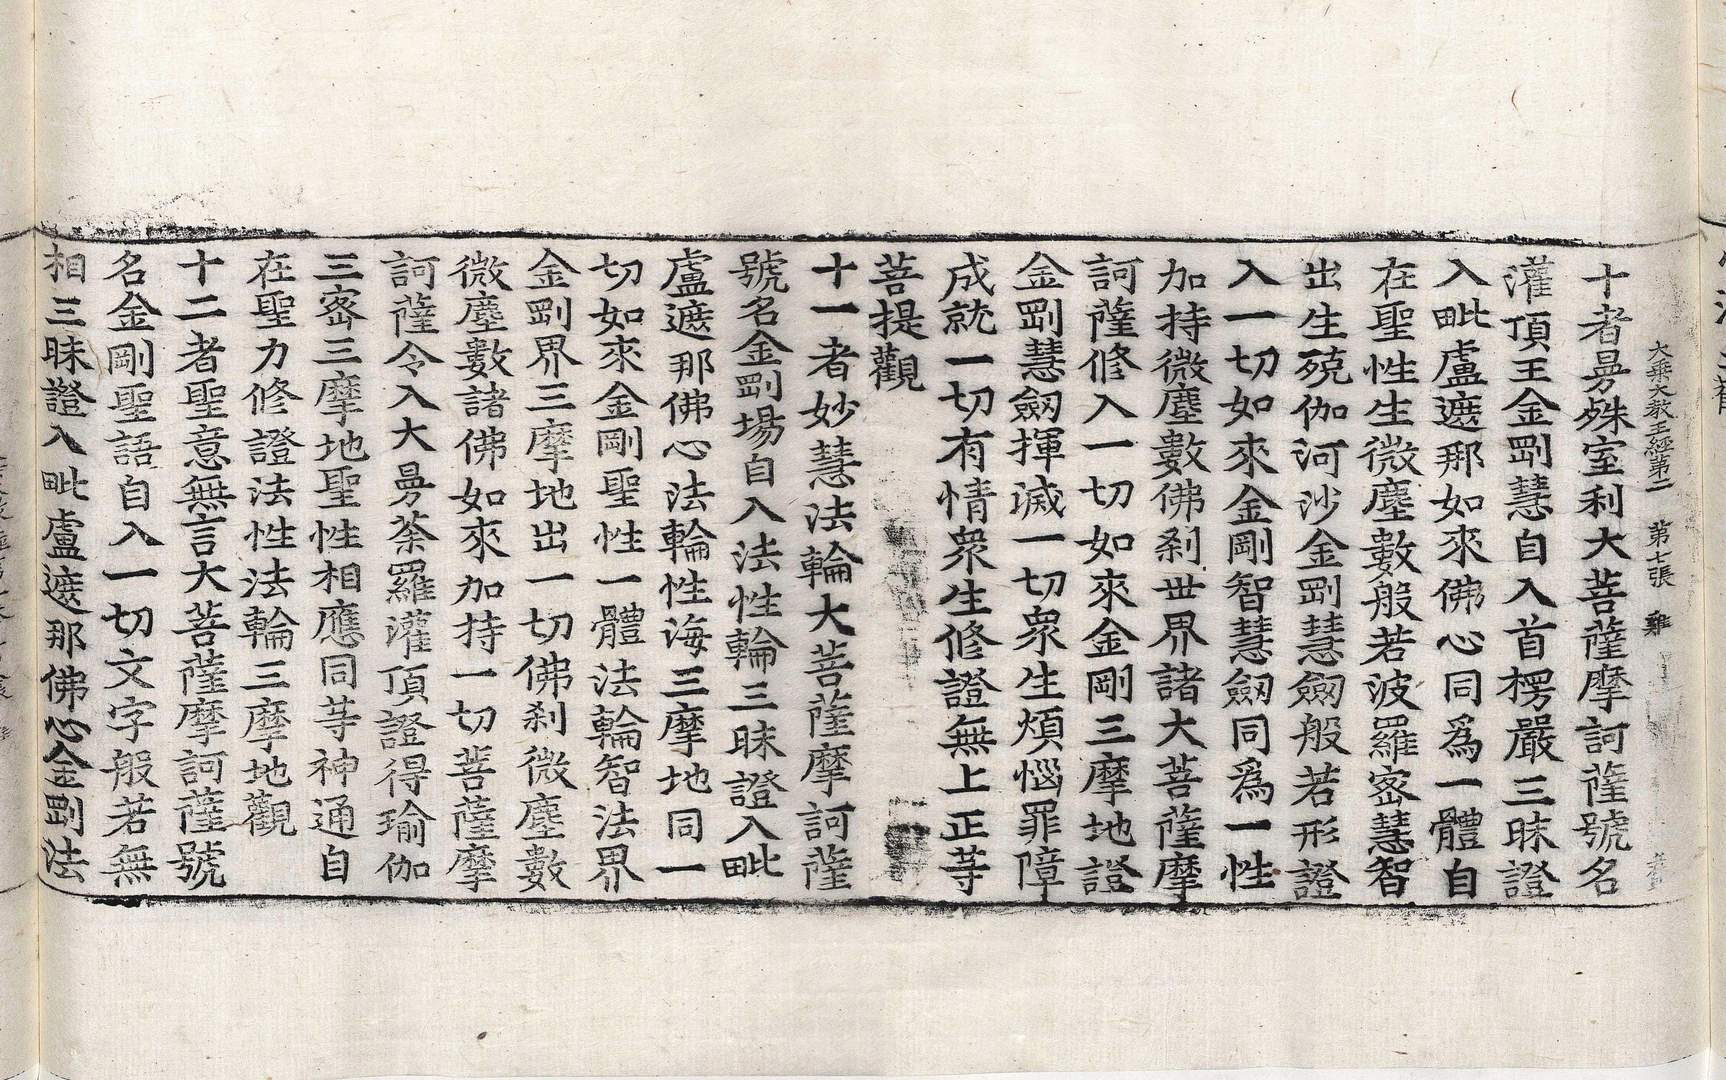 大乗大教王經第二　第七張　雞
十者曼殊室利大菩薩摩訶薩號名
灌頂王金剛慧自入首楞嚴三昧證
入毗盧遮那如來佛心同爲一體自
在聖性生微塵數般若波羅密慧智
出生殑伽河沙金剛慧劔般若形證
入一切如來金剛智慧劔同爲一性
加持微塵數佛刹世界諸大菩薩摩
訶薩修入一切如來金剛三摩地證
金剛慧劔揮滅一切衆生煩惱罪障
成就一切有情衆生修證無上正等
菩提觀
十一者妙慧法輪大菩薩摩訶薩
號名金剛場自入法性輪三昧證入毗
盧遮那佛心法輪性海三摩地同一
切如來金剛聖性一體法輪智法界
金剛界三摩地出一切佛刹微塵數
微塵數諸佛如來加持一切菩薩摩
訶薩令入大曼荼羅灌頂證得瑜伽
三密三摩地聖性相應同等神通自
在聖力修證法性法輪三摩地觀
十二者聖意無言大菩薩摩訶薩號
名金剛聖語自入一切文字般若無
相三昧證入毗盧遮那佛心金剛法